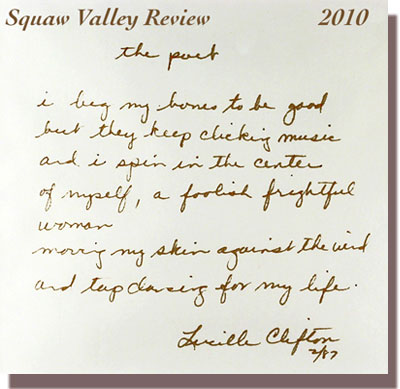 Squaw Valley Review 2010
the poet
i beg my bones to be good
but they keep clicking music
and i spin in the center
of myself, a foolish frightful
woman
moving my skin against the wind
and tap dancing for my life.
Lucille Clifton
2/87